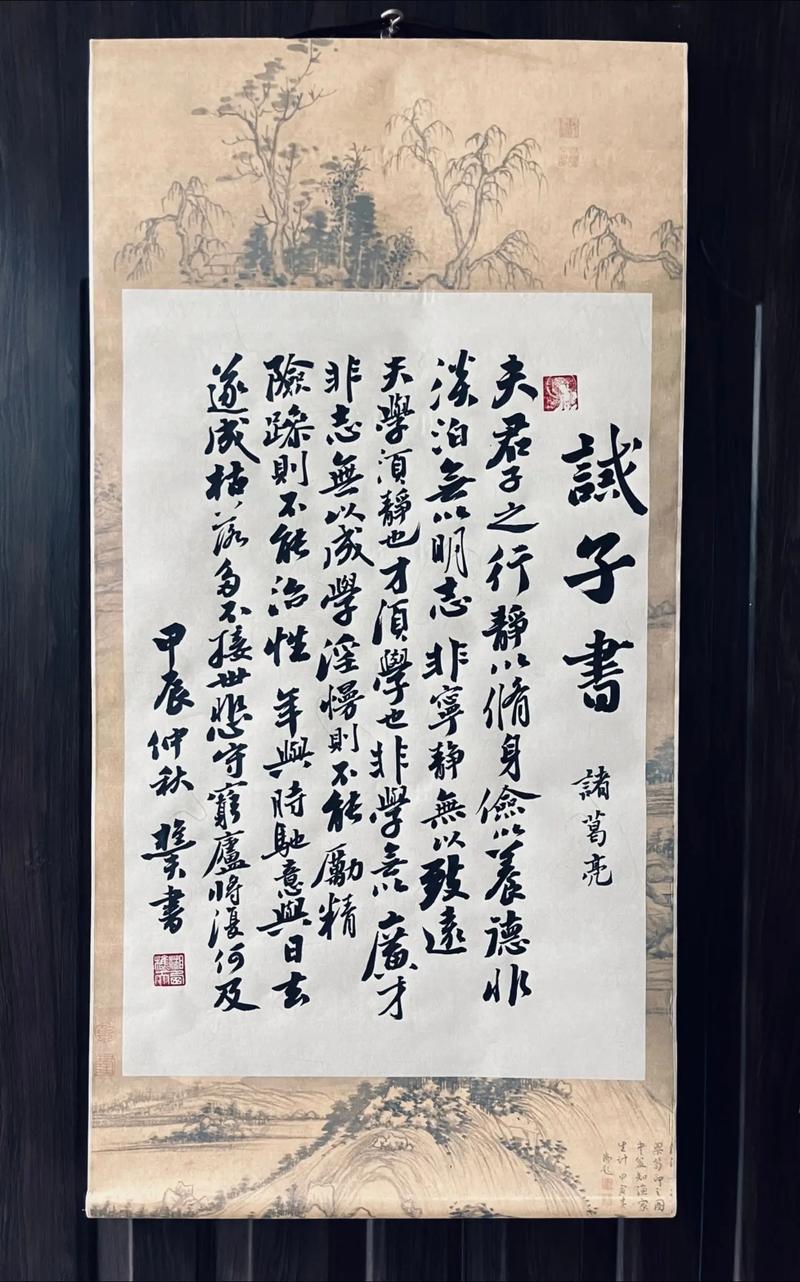 誡子書
諸葛亮
夫君子之行靜以脩身儉以養德非
淡泊無以明志非寧靜無以致遠
夫學須靜也才須學也非學無以廣才
非志無以成學淫慢則不能勵精
險躁則不能治性年與時馳意與日去
遂成枯落多不接世悲守窮廬將復何及
甲辰仲秋 書